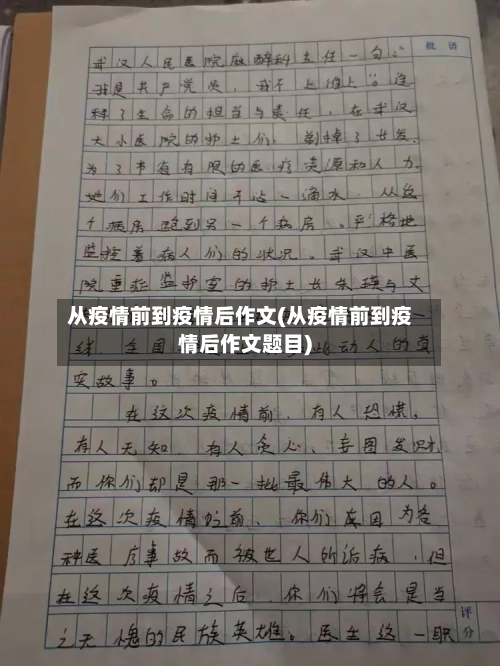 批 语
武汉人民医院麻醉科主任一句："
我是共产党员，我不上谁上"。这
种了生命的担当与责任，在武汉
大小医院的护士们，剃掉了长发，
为了节省有限的医疗资源和人力
她们工作时间不沾一滴水，从这
个病房跑到另一个病房。严格地
监控着病人们的状况。武汉中医
院重症监护室的护士长朱瑛与丈
从疫情前到疫情后作文(从疫情前到疫
情后作文题目)
线，全国 此动人的真
实故事。
在这次疫情前，有人恐慌，
有人无知，有人贪心，妄图发财，
而你们却是那一批最伟大的人。
在这次疫情之前，你们在因为各
种医疗事故而被世人所诟病，但
在这次疫情之后，你们将会是当
之无愧的民族英雄。医生这一职
评
分